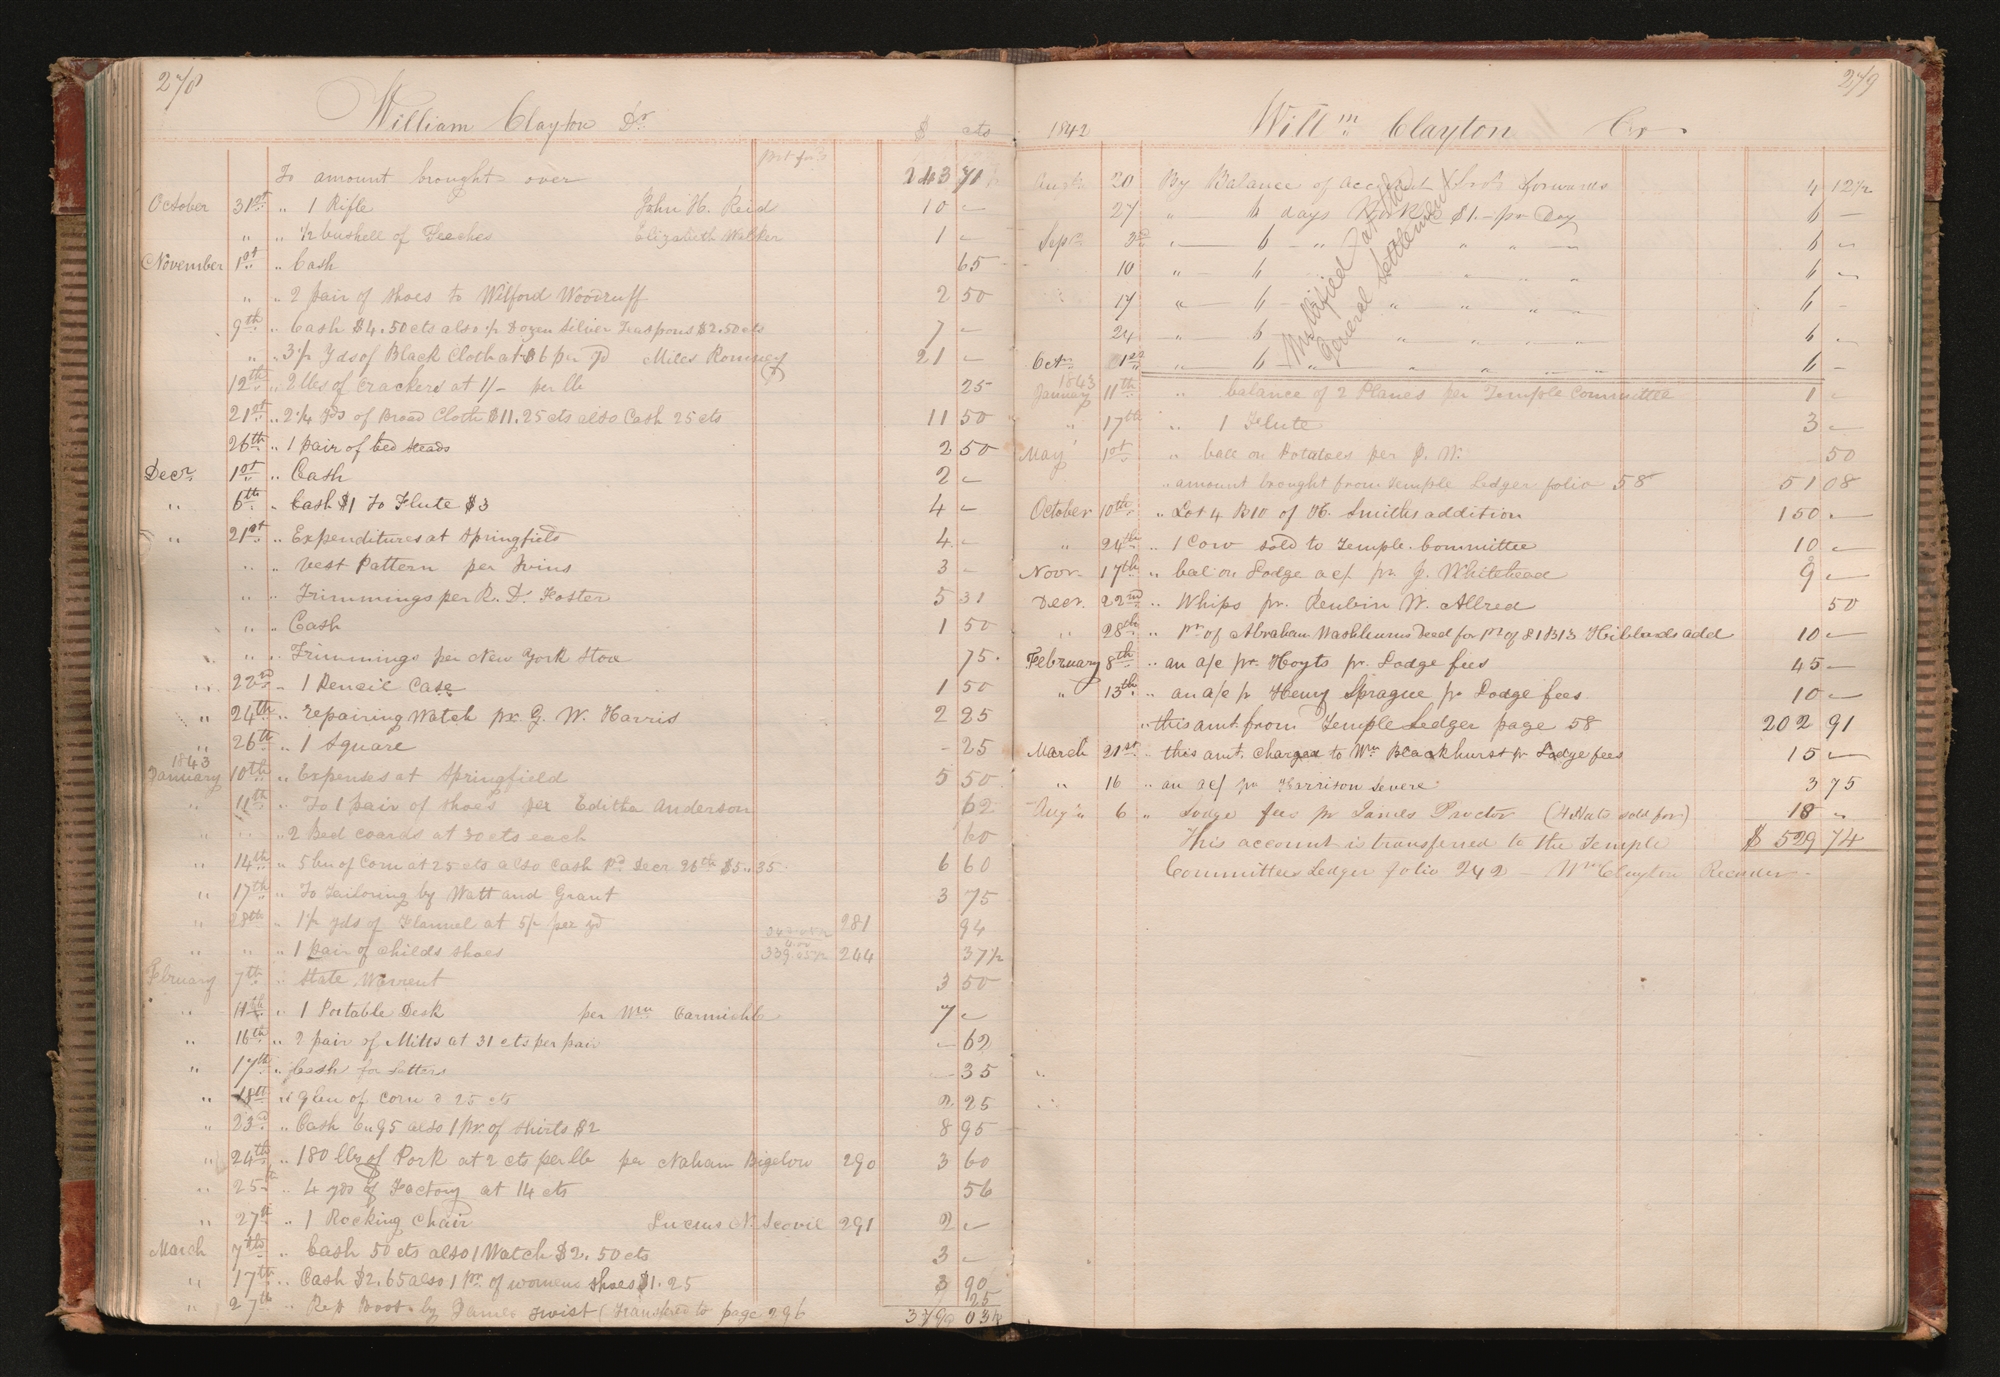 278
William Clayton Dr
$ cts
To amount brought over 243 71
October 31st " 1 Rifle John H. Reid 10 –
" " " ½ bushell of Peaches Elizabeth Walker 1 –
November 1st " Cash 65
" " 2 pair of shoes to Wilford Woodruff 2 50
9th " Cash $4.50 cts also ½ Dozen Silver Teaspoons $2.50 cts 7 –
" " 3½ Yds of Black Cloth at $6 per yd Miles Romney 21 –
12th " 2 lbs of Crackers at 1/- per lb 25
21st " 2¼ Yds of Broad Cloth $11.25 cts also Cash 25 cts 11 50
26th " 1 pair of bed steads 2 50
Decr 1st " Cash 2 –
" 6th " Cash $1 To Flute $3 4 –
" 21st " Expenditures at Springfield 4 –
" " vest Pattern per Ivins 3 –
" " Trimmings per R. D. Foster 5 31
" " Cash 1 50
" " Trimmings per New York Store 75
" 22nd " 1 Pencil Case 1 50
" 24th " repairing Watch pr G. W. Harris 2 25
" 26th " 1 Square – 25
1843
January 10th " Expenses at Springfield 5 50
" 11th " To 1 pair of shoes per Editha Anderson 62
" " " 2 Bed coards at 30 cts each 60
" 14th " 5 bu of Corn at 25 cts also Cash Pd Decr 26th $5.35 6 60
" 17th " To Tailoring by Watt and Grant 3 75
" 28th " 1½ yds of Flannel at 5/ per yd 281 94
" " " 1 pair of childs shoes 339.05½ 244 37½
February 7th " State Warrent 3 50
" 11th " 1 Portable Desk per Wm Carmichle 7 –
" 16th " 2 pair of Mitts at 31 cts per pair – 62
" 17th " Cash for Letters – 35
" 18th " 9 bu of corn a 25 cts 2 25
" 23rd " Cash 6.95 also 1 pr of shirts $2 8 95
" 24th " 180 lbs of Pork at 2 cts per lb per Naham Bigelow 290 3 60
" 25th " 4 yds of Factory at 14 cts 56
" 27th " 1 Rocking Chair Lucius N. Scovil 291 2 –
March 7th " Cash 50 cts also 1 Watch $2.50 cts 3 –
" 17th " Cash $2.65 also 1 pr of womens shoes $1.25 3 90
" 27th " Rep Boots by James Twist (Transfered to page 296 25
379 03½
279
1842 Willm Clayton Cr
20 By Balance of account forwards 4 12½
27 " – 6 days Work $1.– pr Day 6 –
Sepr 3rd " – 6 – " " " " 6 –
10 " – 6 " " " 6 –
17 " – 6 – " " " " 6 –
24 " – 6 " " " 6 –
Octr 1st " – 6 – " " " " 6 –
General Settlement
1843
January 11th " balance of 2 Planes per Temple Committee 1 –
" 17th " 1 Flute 3 –
May 1st " ball on Potatoes per P. W. 50
" amount brought from Temple Ledger folio 58 51 08
October 10th " Lot 4 B10 of H. Smiths addition 150 –
" 24th " 1 Cow sold to Temple Committee 10 –
Novr 17th " bal on Lodge a/c pr J. Whitehead 9 –
Decr 22nd " Whips pr. Reubin W. Allred 50
" 28th " pr of Abraham Washburns Deed for pt of 81 B13 Hiblards add 10 –
February 8th " an a/c pr. Hoyts pr. Lodge fees 45 –
" 13th " an a/c pr Henry Sprague pr Lodge fees 10 –
" this amt. from Temple Ledger page 58 202 91
March 21st " this amt. charged to Wm Blackhurst pr Lodge fees 15 –
" 16 " an a/c pr Harrison Severe 3 75
Aug 6 " Lodge fees pr James Proctor (4 Hats sold for) 18 "
This account is transferred to the Temple $ 529 74
Committee Ledger folio 242 – Wm Clayton Recorder